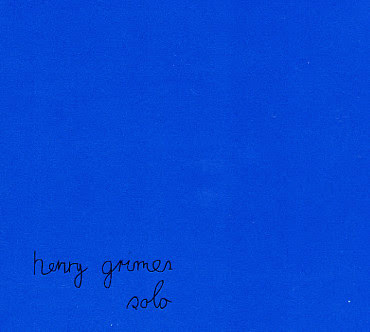 henry grimes
solo